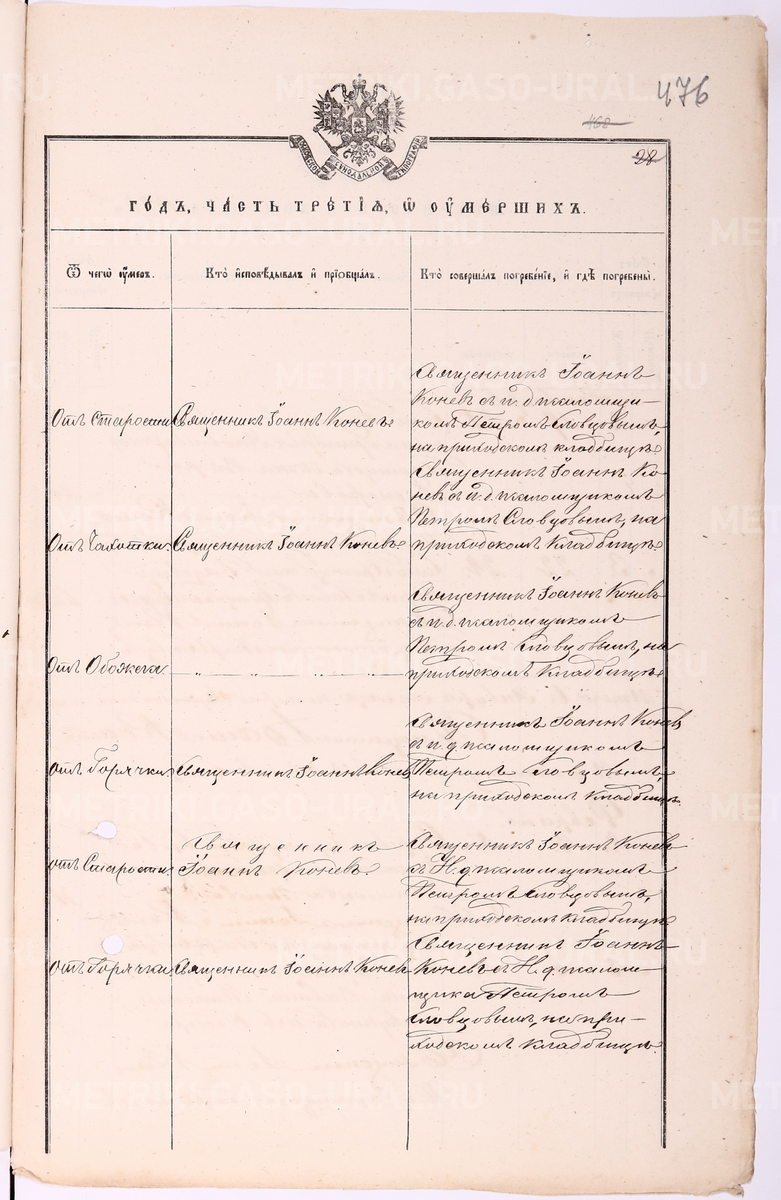 476
468
28
МОСКОВСКОЙ СУНОДАЛЬНОЙ ТИПОГРАФІИ
ГОДЪ, ЧАСТЬ ТРЕТІЯ, Ѡ ОУМЕРШИХЪ.
Ѿ чегѡ оумеръ.
Кто исповѣдывалъ и пріобщалъ.
Кто совершалъ погребеніе, и гдѣ погребены.
Отъ Старости
Священникъ Іоаннъ Коневъ
Священникъ Іоаннъ
Коневъ съ и. д. псаломщи-
комъ Петромъ Словцовымъ
на приходскомъ кладбищѣ
Отъ Чахотки
Священникъ Іоаннъ Коневъ
Священникъ Іоаннъ Ко-
невъ съ и. д. псаломщикомъ
Петромъ Словцовымъ, на
приходскомъ кладбищѣ
Отъ Обожега
„ „ „ „ „
Священникъ Іоаннъ Коневъ
съ и. д. псаломщикомъ
Петромъ Словцовымъ, на
приходскомъ кладбищѣ
отъ Горячки
Священникъ Іоаннъ Коневъ
Священникъ Іоаннъ Коневъ
съ и. д. псаломщикомъ
Петромъ Словцовымъ
на приходскомъ кладбищѣ
отъ Старости
Священникъ
Іоаннъ Коневъ
Священникъ Іоаннъ Коневъ
съ И. д. псаломщикомъ
Петромъ Словцовымъ,
на приходскомъ кладбищѣ
отъ Горячки
Священникъ Іоаннъ Коневъ
Священникъ Іоаннъ
Коневъ съ И. д. псалом-
щика Петромъ
Словцовымъ, на при-
ходскомъ кладбищѣ
METRIKI.GASO-URAL.RU